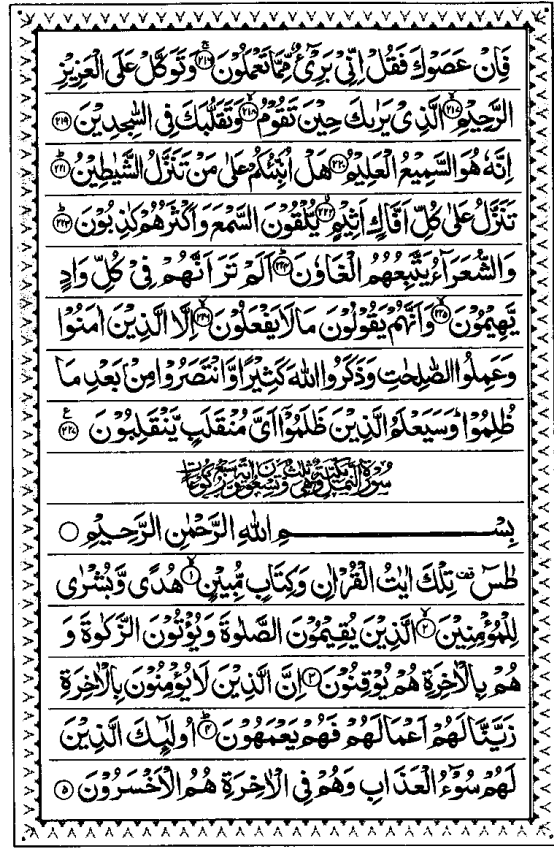 فَاِنْ عَصَوْكَ فَقُلْ اِنِّىْ بَرِىْٓءٌ مِّمَّا تَعْمَلُوْنَ ۚ﴿۲۱۶﴾ وَتَوَكَّلْ عَلَى الْعَزِيْزِ
الرَّحِيْمِ ۙ﴿۲۱۷﴾ الَّذِىْ يَرٰىكَ حِيْنَ تَقُوْمُ ۙ﴿۲۱۸﴾ وَتَقَلُّبَكَ فِى السّٰجِدِيْنَ ﴿۲۱۹﴾
اِنَّهٗ هُوَ السَّمِيْعُ الْعَلِيْمُ ﴿۲۲۰﴾ هَلْ اُنَبِّئُكُمْ عَلٰى مَنْ تَنَزَّلُ الشَّيٰطِيْنُ ؕ﴿۲۲۱﴾
تَنَزَّلُ عَلٰى كُلِّ اَفَّاكٍ اَثِيْمٍ ۙ﴿۲۲۲﴾ يُّلْقُوْنَ السَّمْعَ وَاَكْثَرُهُمْ كٰذِبُوْنَ ؕ﴿۲۲۳﴾
وَالشُّعَرَآءُ يَتَّبِعُهُمُ الْغَاوٗنَ ؕ﴿۲۲۴﴾ اَلَمْ تَرَ اَنَّهُمْ فِىْ كُلِّ وَادٍ
يَّهِيْمُوْنَ ۙ﴿۲۲۵﴾ وَاَنَّهُمْ يَقُوْلُوْنَ مَا لَا يَفْعَلُوْنَ ۙ﴿۲۲۶﴾ اِلَّا الَّذِيْنَ اٰمَنُوْا
وَعَمِلُوا الصّٰلِحٰتِ وَذَكَرُوا اللّٰهَ كَثِيْرًا وَّانْتَصَرُوْا مِنْۢ بَعْدِ مَا
ظُلِمُوْا ؕ وَسَيَعْلَمُ الَّذِيْنَ ظَلَمُوْۤا اَىَّ مُنْقَلَبٍ يَّنْقَلِبُوْنَ ﴿۲۲۷﴾ ع
سُوْرَةُ النَّمْلِ مَكِّيَّةٌ وَّهِىَ ثَلٰثٌ وَّتِسْعُوْنَ اٰيَةً وَّسَبْعُ رُكُوْعَاتٍ
بِسْمِ اللّٰهِ الرَّحْمٰنِ الرَّحِيْمِ ○
طٰسٓ ۟ تِلْكَ اٰيٰتُ الْقُرْاٰنِ وَكِتَابٍ مُّبِيْنٍ ۙ﴿۱﴾ هُدًى وَّبُشْرٰى
لِلْمُؤْمِنِيْنَ ۙ﴿۲﴾ الَّذِيْنَ يُقِيْمُوْنَ الصَّلٰوةَ وَيُؤْتُوْنَ الزَّكٰوةَ وَ
هُمْ بِالْاٰخِرَةِ هُمْ يُوْقِنُوْنَ ﴿۳﴾ اِنَّ الَّذِيْنَ لَا يُؤْمِنُوْنَ بِالْاٰخِرَةِ
زَيَّنَّا لَهُمْ اَعْمَالَهُمْ فَهُمْ يَعْمَهُوْنَ ؕ﴿۴﴾ اُولٰٓئِكَ الَّذِيْنَ
لَهُمْ سُوْٓءُ الْعَذَابِ وَهُمْ فِى الْاٰخِرَةِ هُمُ الْاَخْسَرُوْنَ ﴿۵﴾